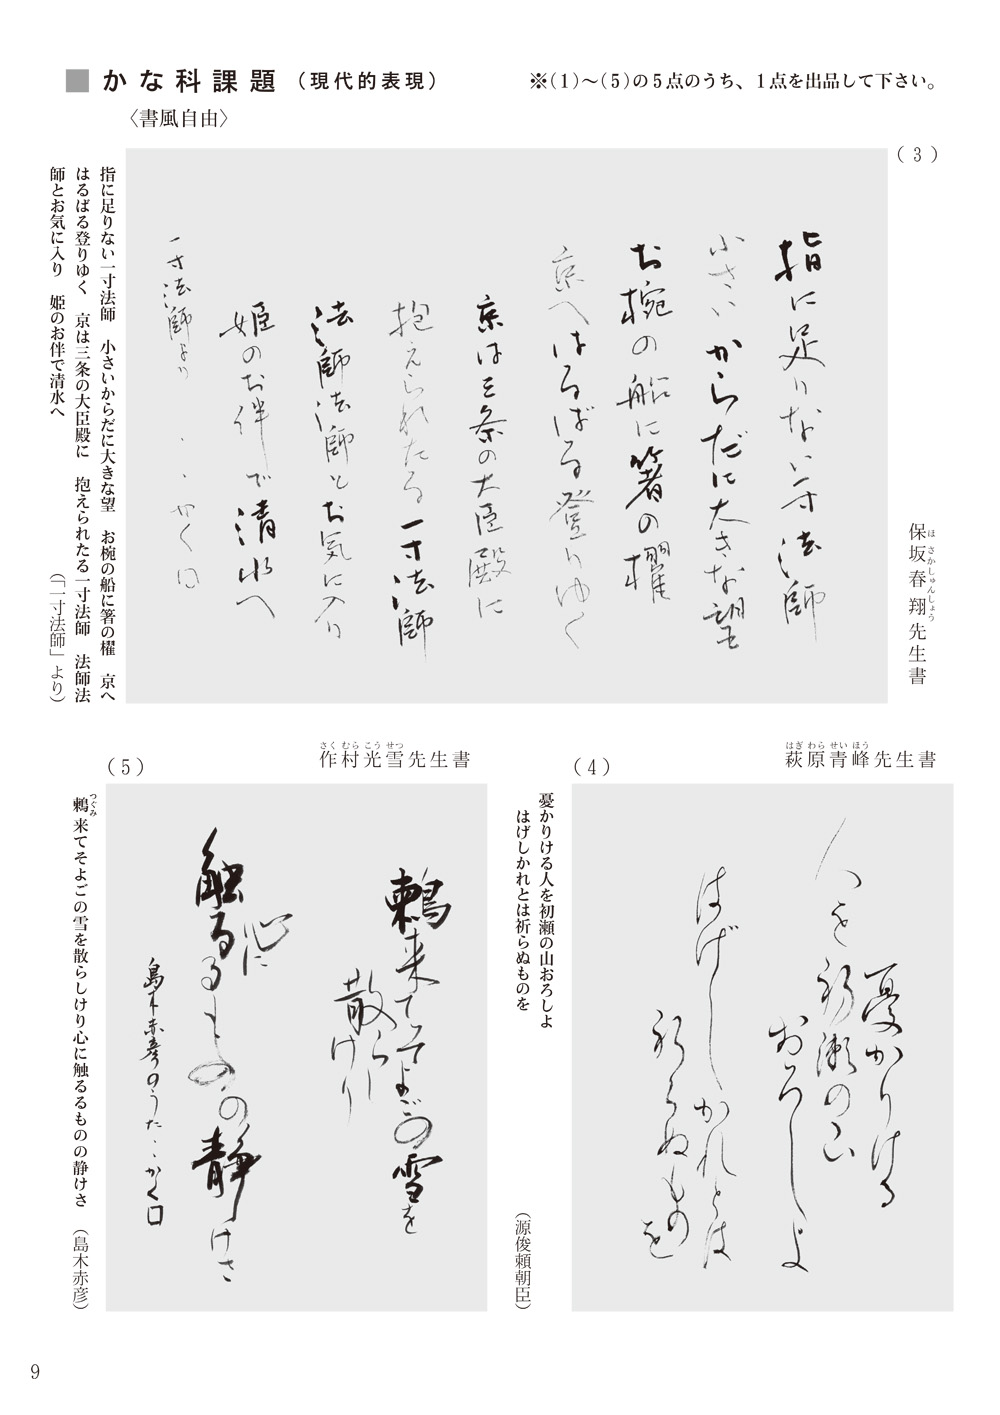 ■かな科課題（現代的表現）
※（1）～（5）の5点のうち、1点を出品して下さい。
〈書風自由〉
（3）
保坂春翔先生書
ほさかしゅんしょう
指に足りない一寸法師
小さいからだに大きな望
お椀の船に箸の櫂
京へはるばる登りゆく
京は三条の大臣殿に
抱えられたる一寸法師
法師法師とお気に入り
姫のお伴で清水へ
一寸法師より　、、かく□
指に足りない一寸法師　小さいからだに大きな望　お椀の船に箸の櫂　京へ
はるばる登りゆく　京は三条の大臣殿に　抱えられたる一寸法師　法師法
師とお気に入り　姫のお伴で清水へ
（「一寸法師」より）
（4）
萩原青峰先生書
はぎわらせいほう
憂かりける
人を初瀬の山
おろしよ
はげしかれとは
祈らぬものを
憂かりける人を初瀬の山おろしよ
はげしかれとは祈らぬものを
（源俊頼朝臣）
（5）
作村光雪先生書
さくむらこうせつ
鶫来てそよごの雪を
散らしけり
心に
触るるものの静けさ
島木赤彦のうた、、かく□
鶫来てそよごの雪を散らしけり心に触るるものの静けさ　（島木赤彦）
つぐみ
9